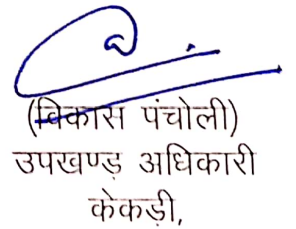 (विकास पंचोली)
उपखण्ड अधिकारी
केकड़ी,